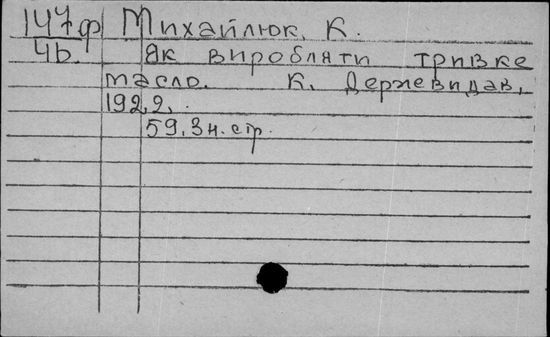 147ф Михайлюк, К.
4b. Як виробляти тривке
масло. К. Держвидав,
1922.
59, 3 н. стр.